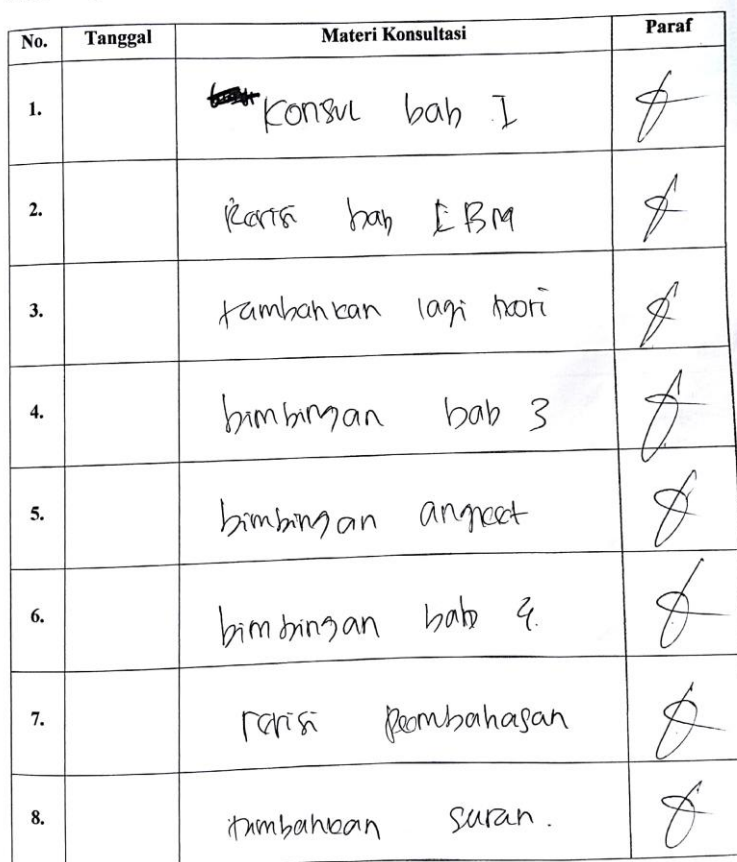 No. Tanggal Materi Konsultasi Paraf
1. Konsul bab I
2. Revisi bab I BM
3. tambahkan lagi teori
4. bimbingan bab 3
5. bimbingan angket
6. bimbingan bab 4.
7. revisi pembahasan
8. tambahkan saran.